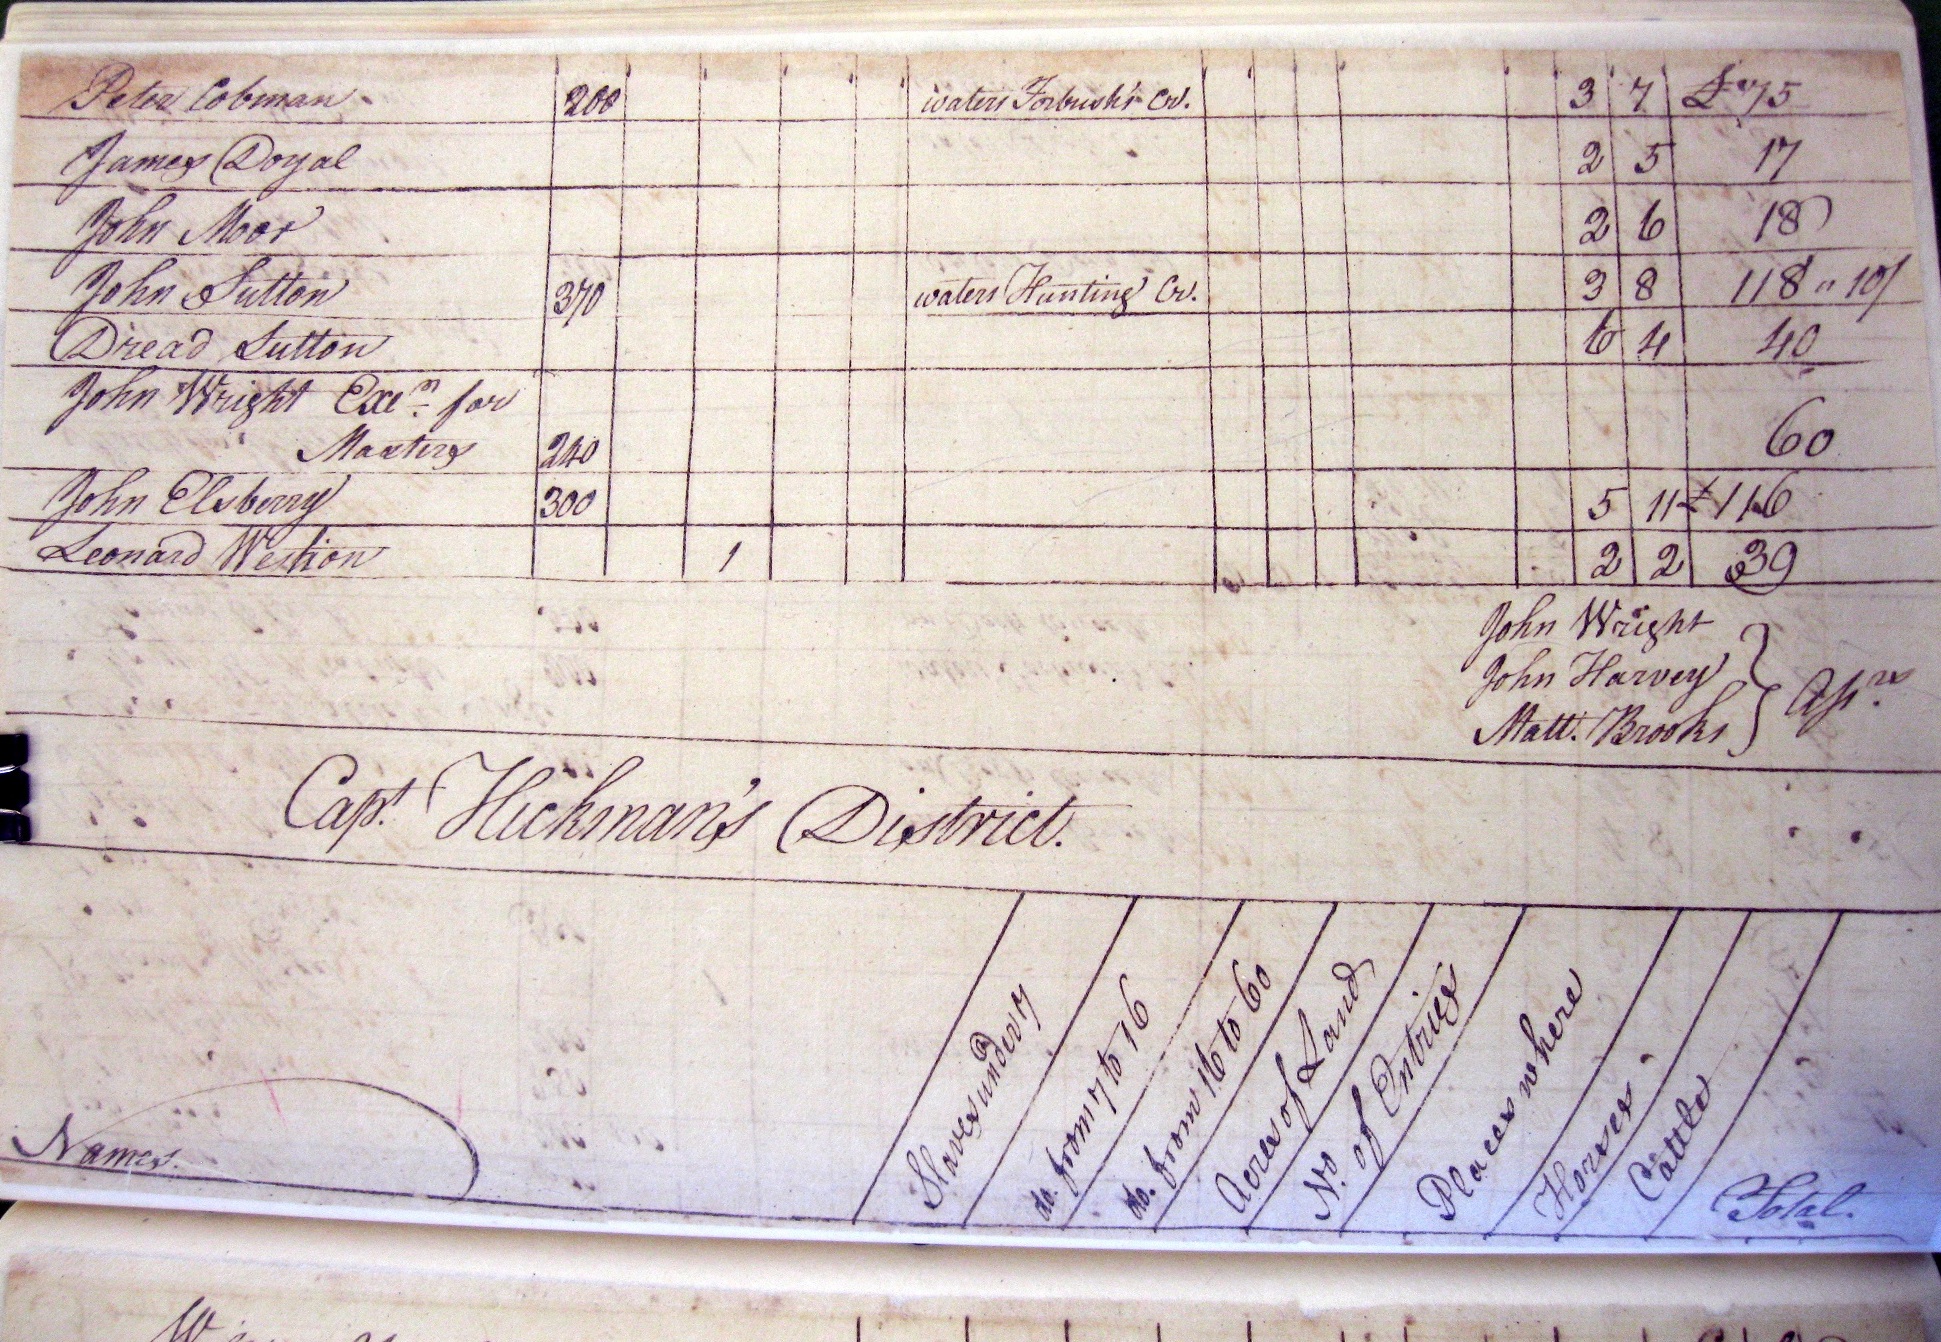 Peter Cobman 200 waters Forbush's Cr. 3 7 £ 75
James Doyal 2 5 17
John Moor 2 6 18
John Sutton 370 waters Hunting Cr. 3 8 118 " 10/
Dread Sutton 6 4 40
John Wright Exe.n for
Masters 240 60
John Elsberry 300 5 11 £ 116
Leonard Westion 1 2 2 39
John Wright
John Harvey
Matt. Brooks
Capt. Hickman's District.
Names.
Slaves under 7
do. from 7 to 16
do. from 16 to 60
Acres of Land
No. of Entries
Places where
Horses
Cattle
Total.